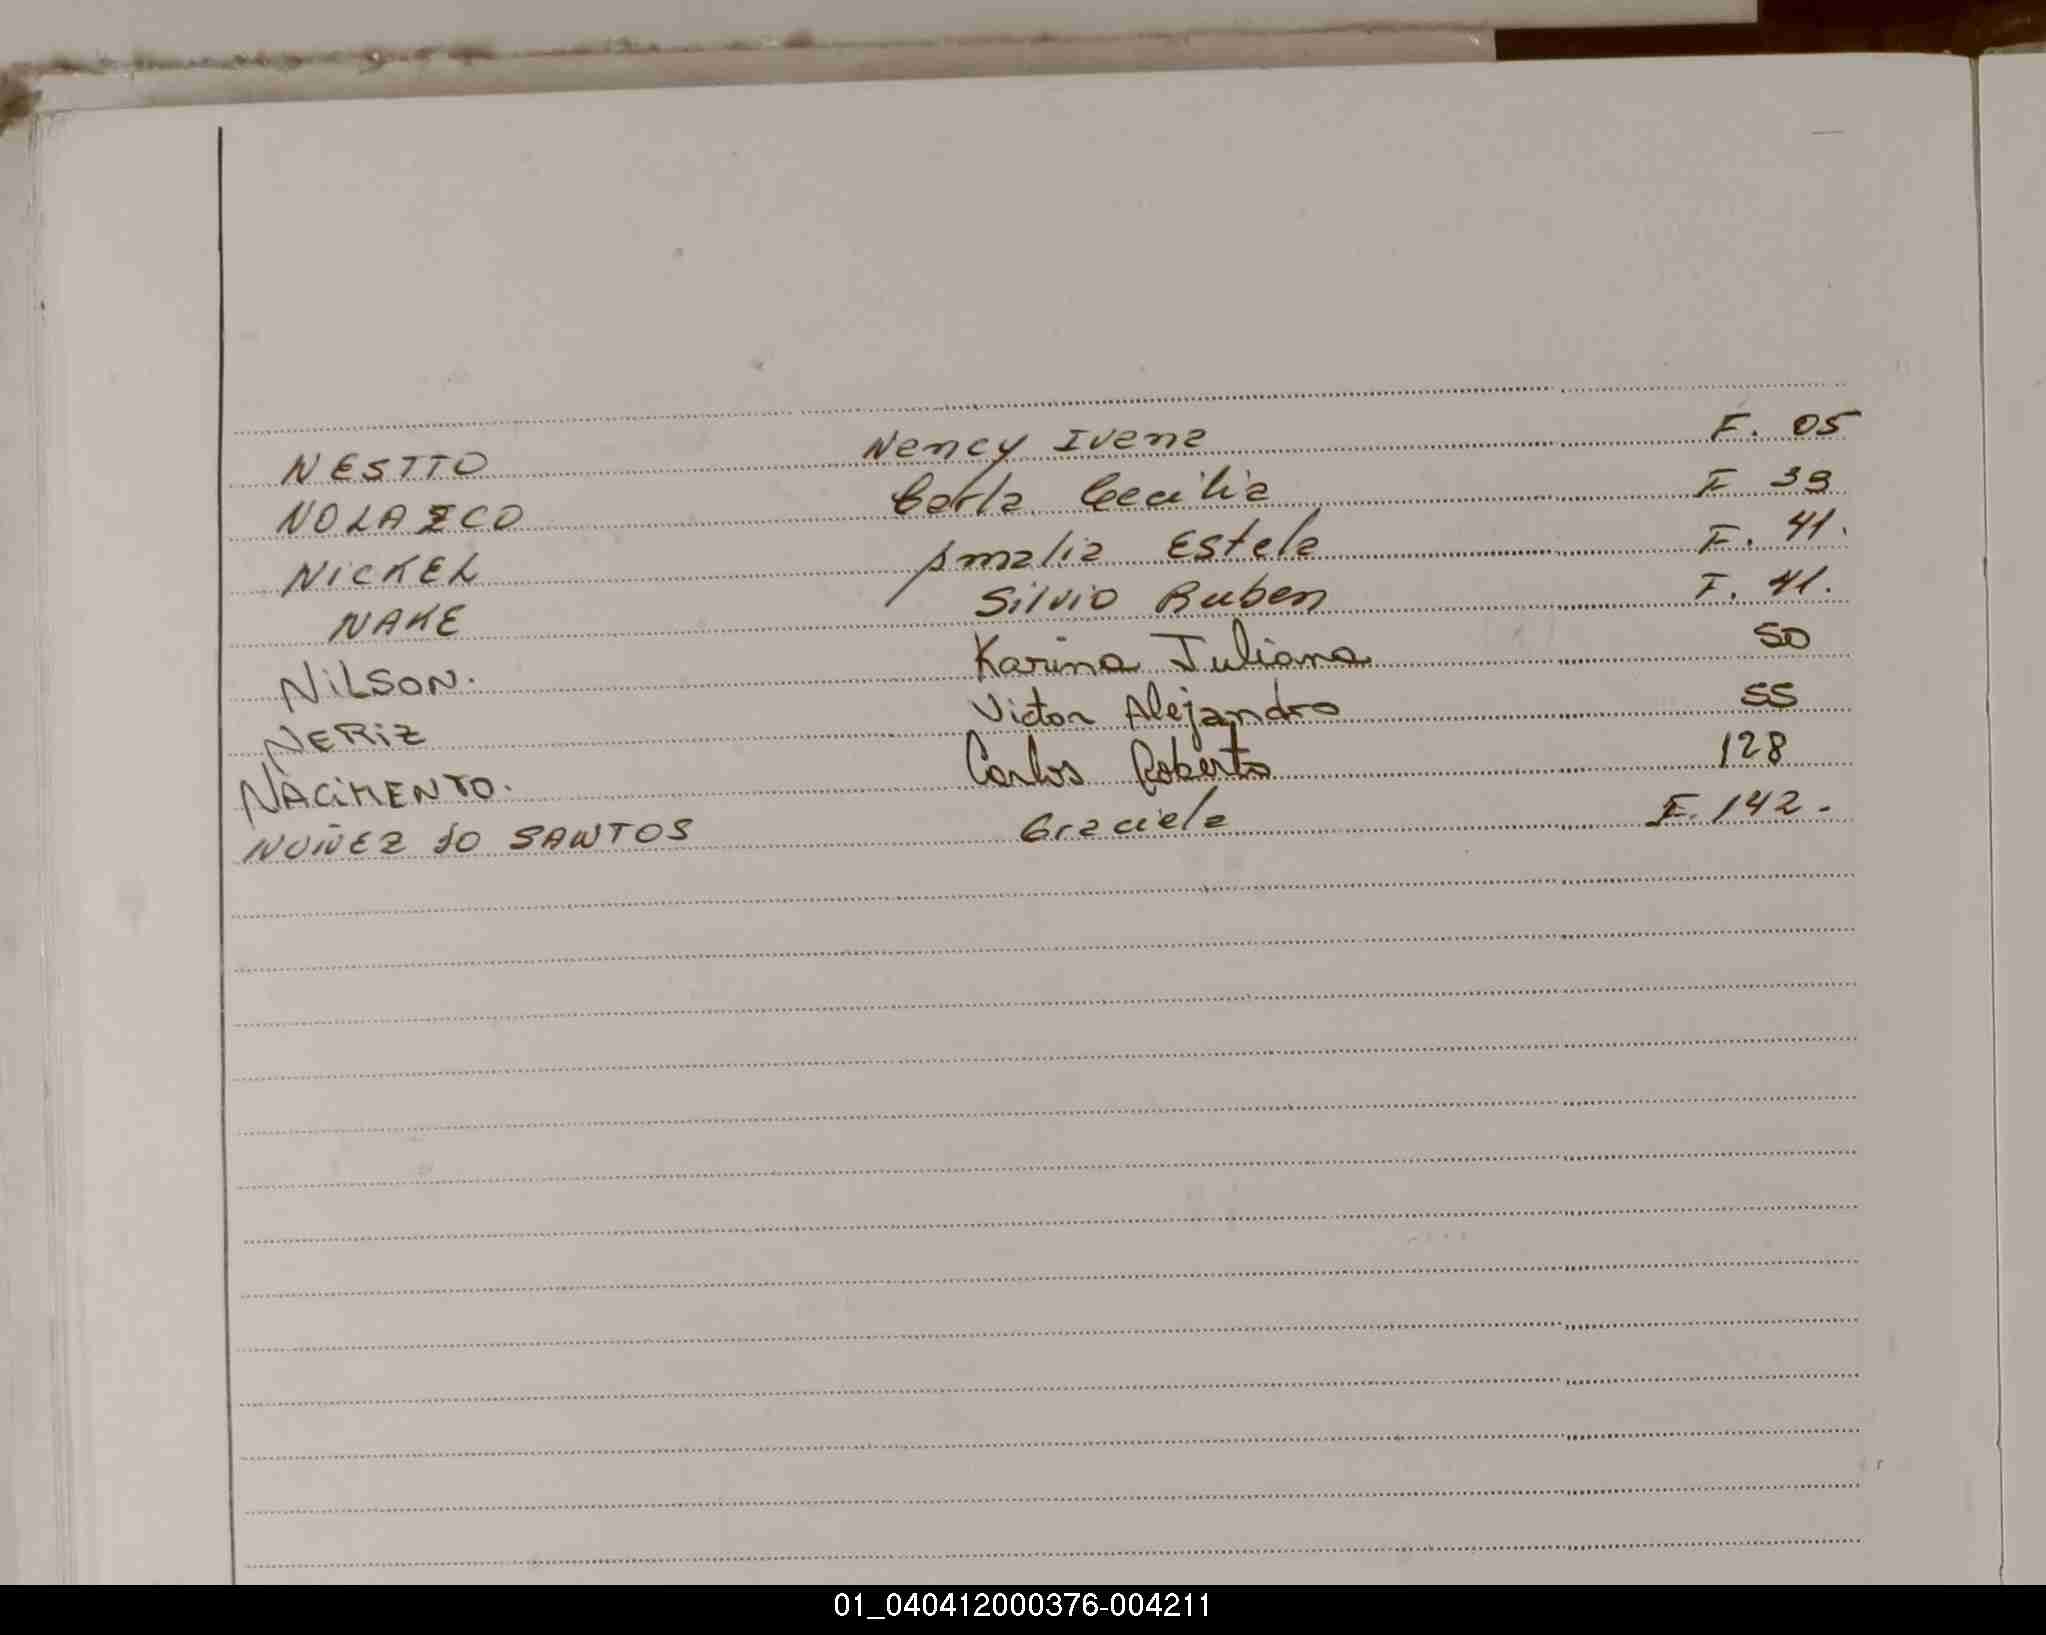 NESTTO Nancy Ivana F. 05
NOLAZCO Carla Cecilia F 39
NICKEL Amalia Estela F. 41.
NAKE Silvio Ruben F. 41.
NILSON. Karina Juliana 50
NERIZ Victor Alejandro 55
NACIMENTO. Carlos Roberto 128
NUÑEZ do SANTOS Graciela F. 142.
01_040412000376-004211